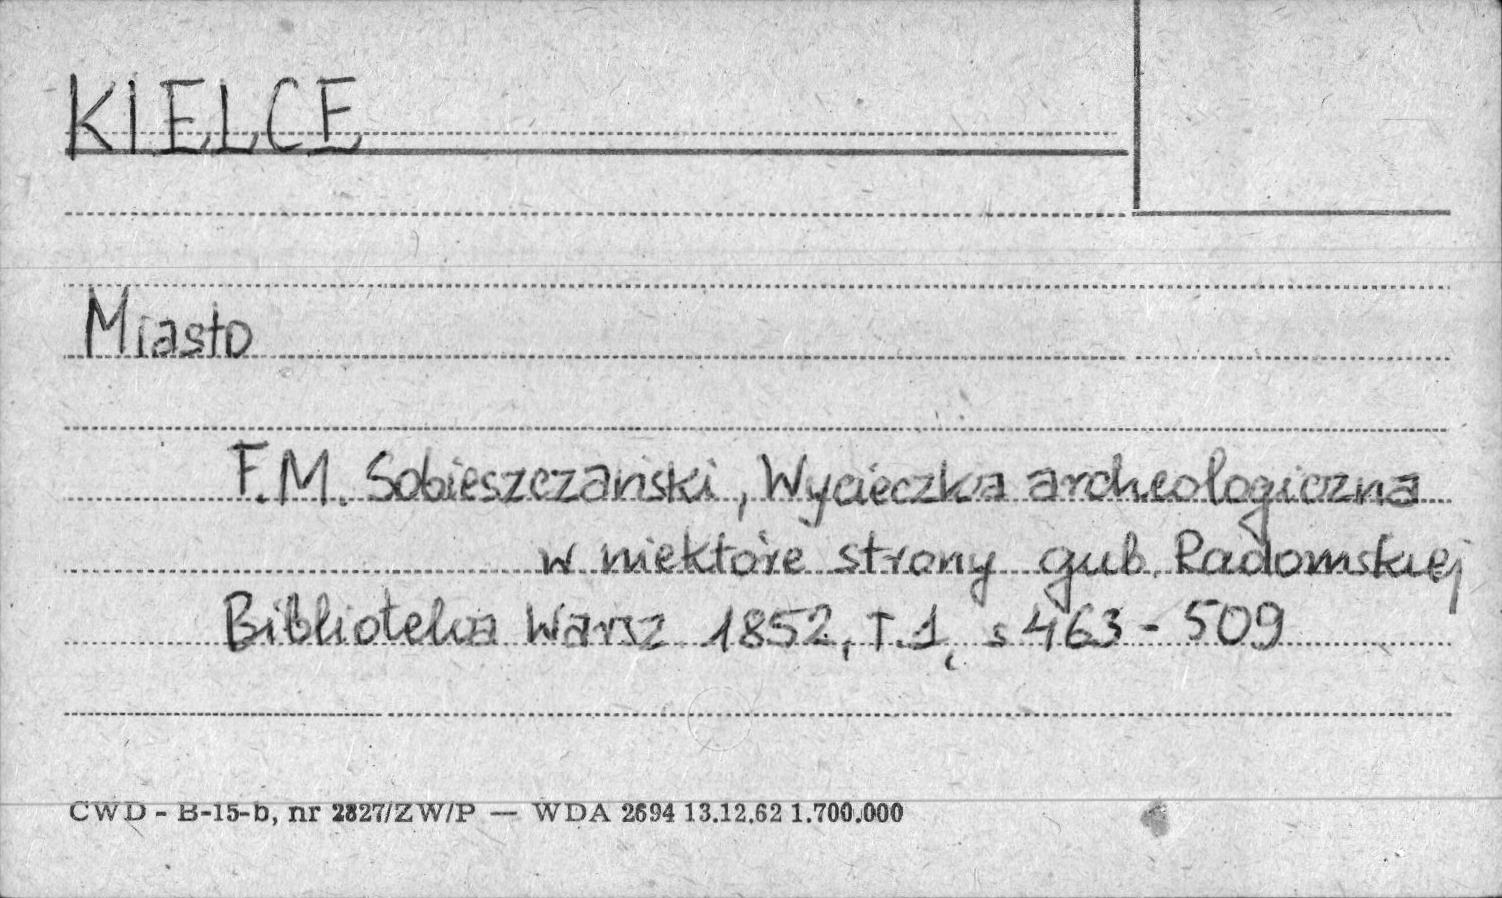 KIELCE
Miasto
F.M. Sobieszczański, Wycieczka archeologiczna
w niektóre strony gub. Radomskiej
Biblioteka Warsz 1852, T.1, s 463-509
CWD - B-15-b, nr 2827/ZW/P — WDA 2694 13.12.62 1.700.000